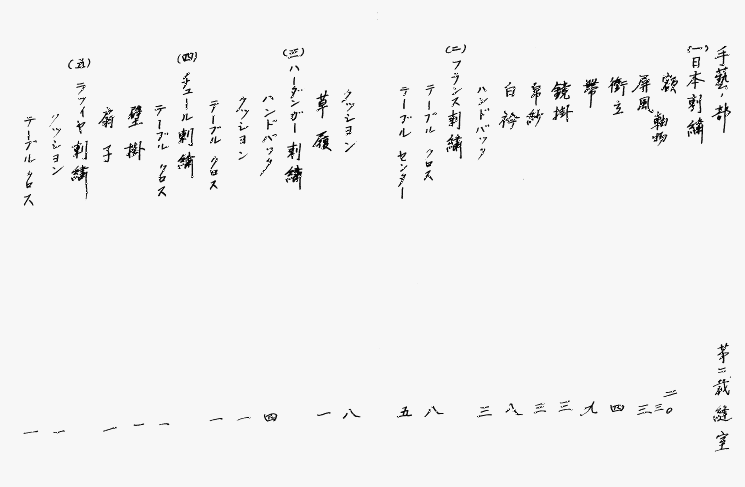 手藝ノ部 第二裁縫室
(一)日本刺繍
額 二〇
軸物 三
屏風 三
衝立 四
帶 九
鏡掛 三
帛紗 三
白衿 八
ハンドバック 三
(二)フランス刺繍
テーブル クロス 八
テーブル センター 五
クッション 八
草履 一
(三)ハーダンガー刺繍
ハンドバック 四
クッション 一
テーブル クロス 一
(四)チュール刺繍
テーブル クロス 一
壁掛 一
扇子 一
(五)ラフイヤ刺繍
クッション 一
テーブル クロス 一